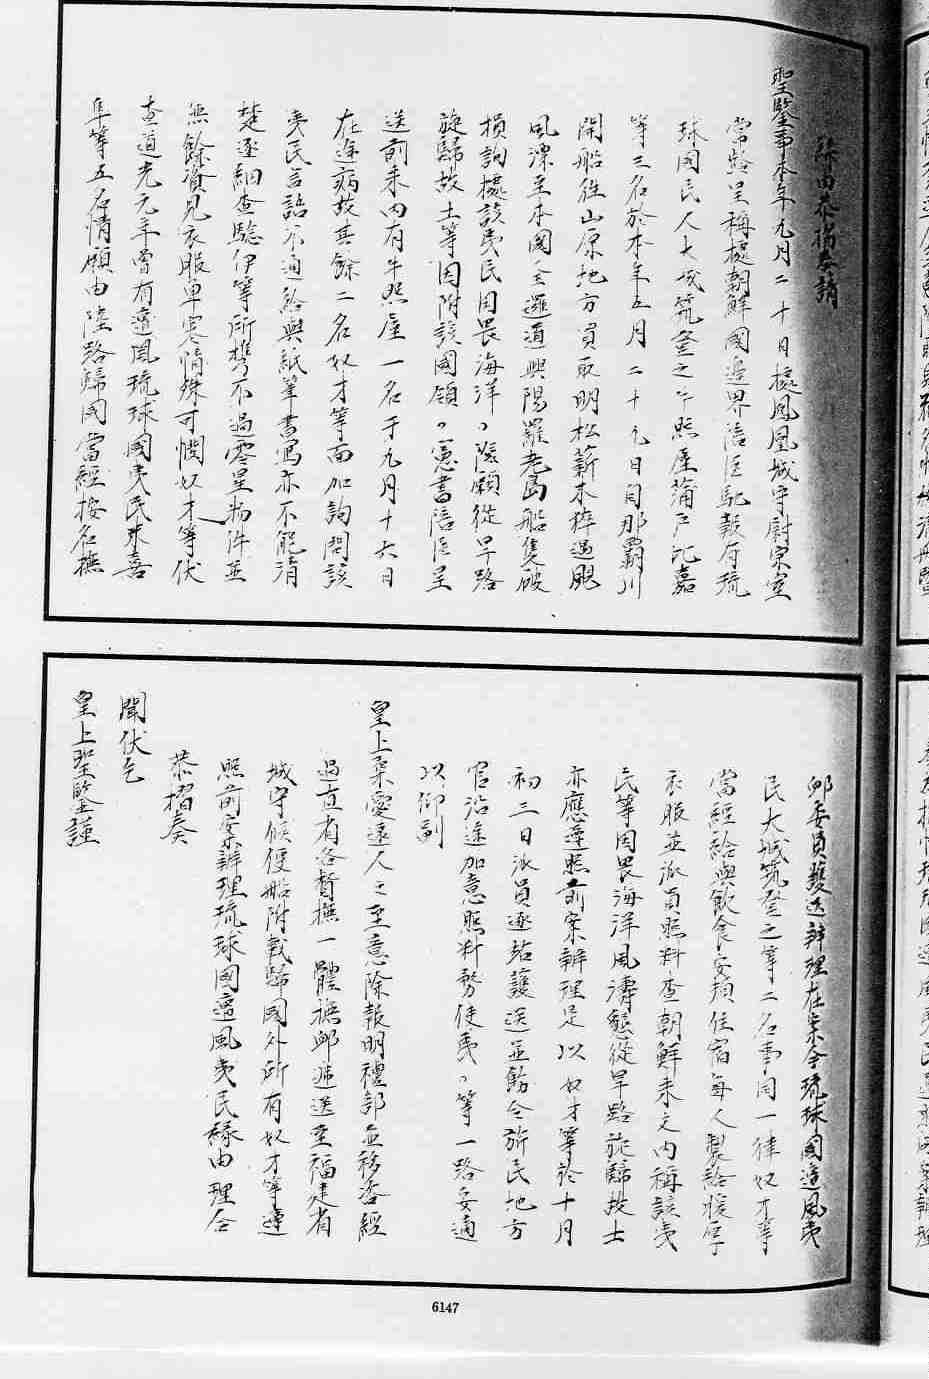 緣由恭摺奏請
聖鑒事本年九月二十日據鳳凰城守尉宗室
常齡呈稱據朝鮮國邊界陪臣馳報有琉
球國民人大城筑登之牛照屋蒲戶比嘉
等三名於本年五月二十九日自那霸川
開船往山原地方貟取明松薪木猝遇颶
風漂至本國全邏道興陽羅老島船隻破
損詢據該夷民因畏海洋〃險願從旱路
旋歸故土等因附該國領〃憲書陪臣呈
送前來內有牛照屋一名于九月十六日
在途病故其餘二名奴才等面加詢問該
夷民言語不通給與紙筆書寫亦不能清
楚逐細查驗伊等所攜不過零星物件並
無餘資見衣服單寒情殊可憫奴才等伏
查道光元年曾有遭風琉球國夷民米喜
阜等五名情願由陸路歸國當經按名撫
卹委員護送辦理在案今琉球國遭風夷
民大城筑登之等二名事同一律奴才等
當經給與飲食安頓住宿每人製給煖厚
衣服並派員照料查朝鮮來文內稱該夷
民等因畏海洋風濤懇從旱路旋歸故土
亦應遵照前案辦理是以奴才等於十月
初三日派員逐站護送並飭令旂民地方
官沿途加意照料務使夷〃等一路妥適
以仰副
皇上柔愛遠人之至意除報明禮部並移咨經
過直省各督撫一體撫卹遞送至福建省
城守候便船附載歸國外所有奴才等遵
照前案辦理琉球國遭風夷民緣由理合
恭摺奏
聞伏乞
皇上聖鑒謹
6147